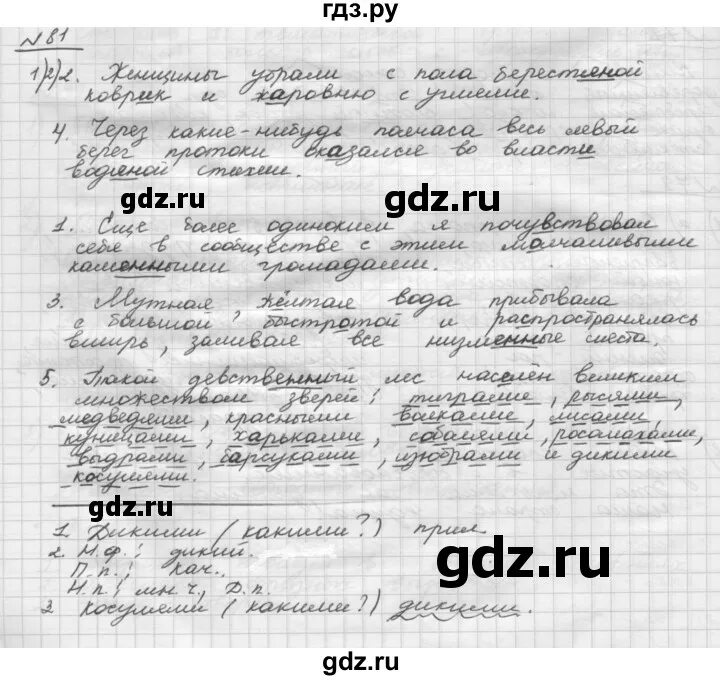 гдз.ру
№81
1)2)2. Женщины убрали с пола берестяной
коврик и жаровню с углями.
4. Через какие-нибудь полчаса весь левый
берег протоки оказался во власти
водяной стихии.
gdz.ru gdz.ru
1. Еще более одиноким я почувствовал
себя в сообществе с этими молчаливыми
каменными громадами.
3. Мутная, жёлтая вода прибывала
с большой быстротой и распространялась
вширь, заливая все низменные места.
5. Такой девственный лес населён великим
множеством зверей: тиграми, рысями,
медведями, красными волками, лисами,
куницами, харьками, соболями, росомахами,
выдрами, барсуками, изюбрами и дикими
косулями.
gdz.ru gdz.ru
1. Дикими (какими?) прил.
2. Н.ф.: дикий.
П.п.: кач.,
Н.п: мн.ч., Д.п.
3 косулями (какими?) дикими.
gdz.ru gdz.ru
gdz.ru